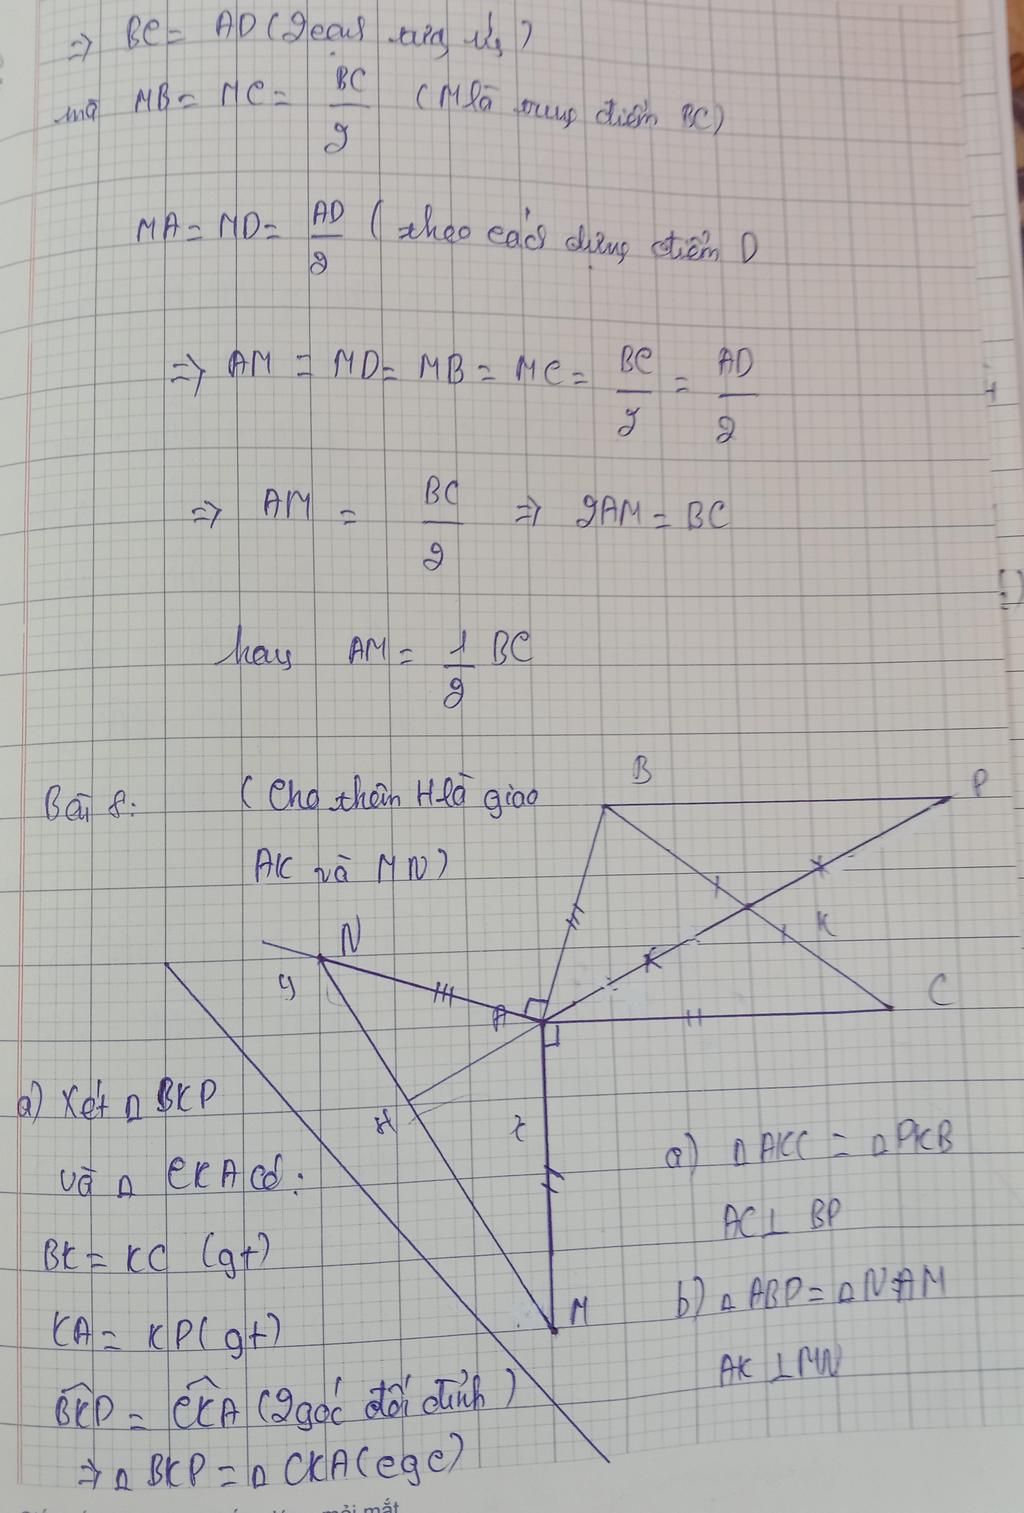 ⇒ BC = AD (2 cạnh tương ứng)
mà MB = MC = BC/2 (M là trung điểm BC)
MA = MD = AD/2 (theo cách dựng điểm D
⇒ AM = MD = MB = MC = BC/2 = AD/2
⇒ AM = BC/2 ⇒ 2AM = BC
hay AM = 1/2 BC
Bài 8: (Cho thêm H là giao
AK và MN)
B
P
K
C
N
y
A
H
x
M
a) Xét Δ BKP
và Δ CKA có:
BK = KC (gt)
KA = KP (gt)
BKP = CKA (2 góc đối đỉnh)
⇒ Δ BKP = Δ CKA (cgc)
a) Δ AKC = Δ PKB
AC ⊥ BP
b) Δ ABP = Δ NAM
AK ⊥ MN
mỏi mắt